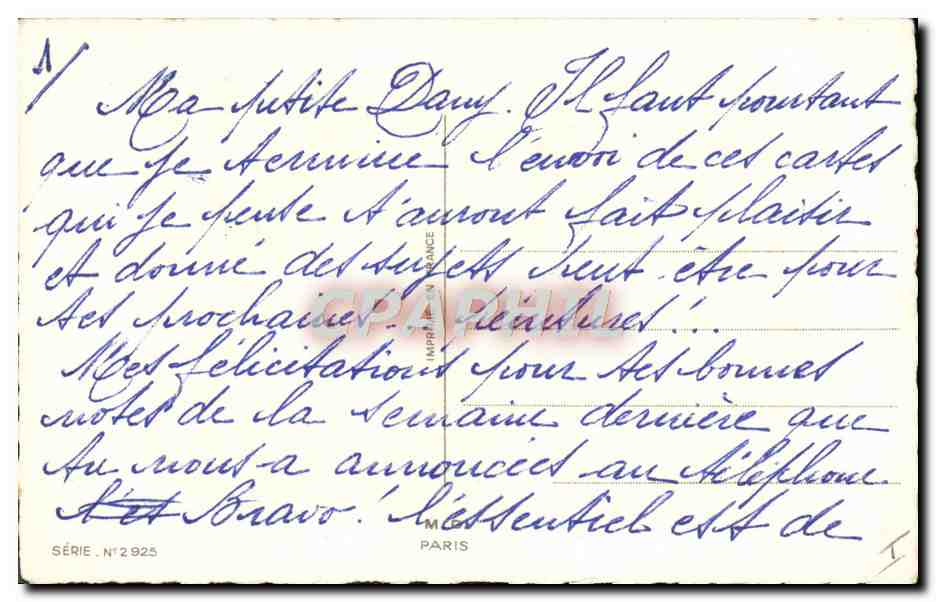 1/
Ma petite Dany. Il faut pourtant
que je termine l'envoi de ces cartes
qui je pense t'auront fait plaisir
et donné des sujets peut-être pour
tes prochaines peintures!..
Mes félicitations pour tes bonnes
notes de la semaine dernière que
tu nous a annoncées au téléphone.
Bravo! l'essentiel est de
IMPRIMÉ EN FRANCE
CPAPHIL
M.D.
PARIS
SÉRIE. N° 2925